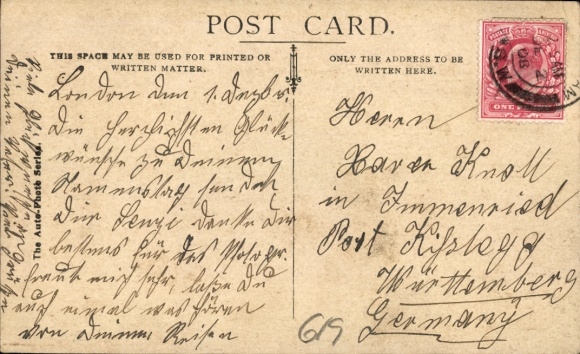 POST CARD.
THIS SPACE MAY BE USED FOR PRINTED OR
WRITTEN MATTER.
ONLY THE ADDRESS TO BE
WRITTEN HERE.
London den 1. Dezbr.
Die herzlichsten Glück
wünsche zu Deinem
Namenstag sendet
Dir Senze danke Dir
bestens für das Photogr.
freut mich sehr, laße Du
auch einmal was hören
von Deinen Reisen
The Auto-Photo Series.
Herrn
Xaver Knoll
in Immenried
Post Kißlegg
Württemberg
Germany
619
ONE